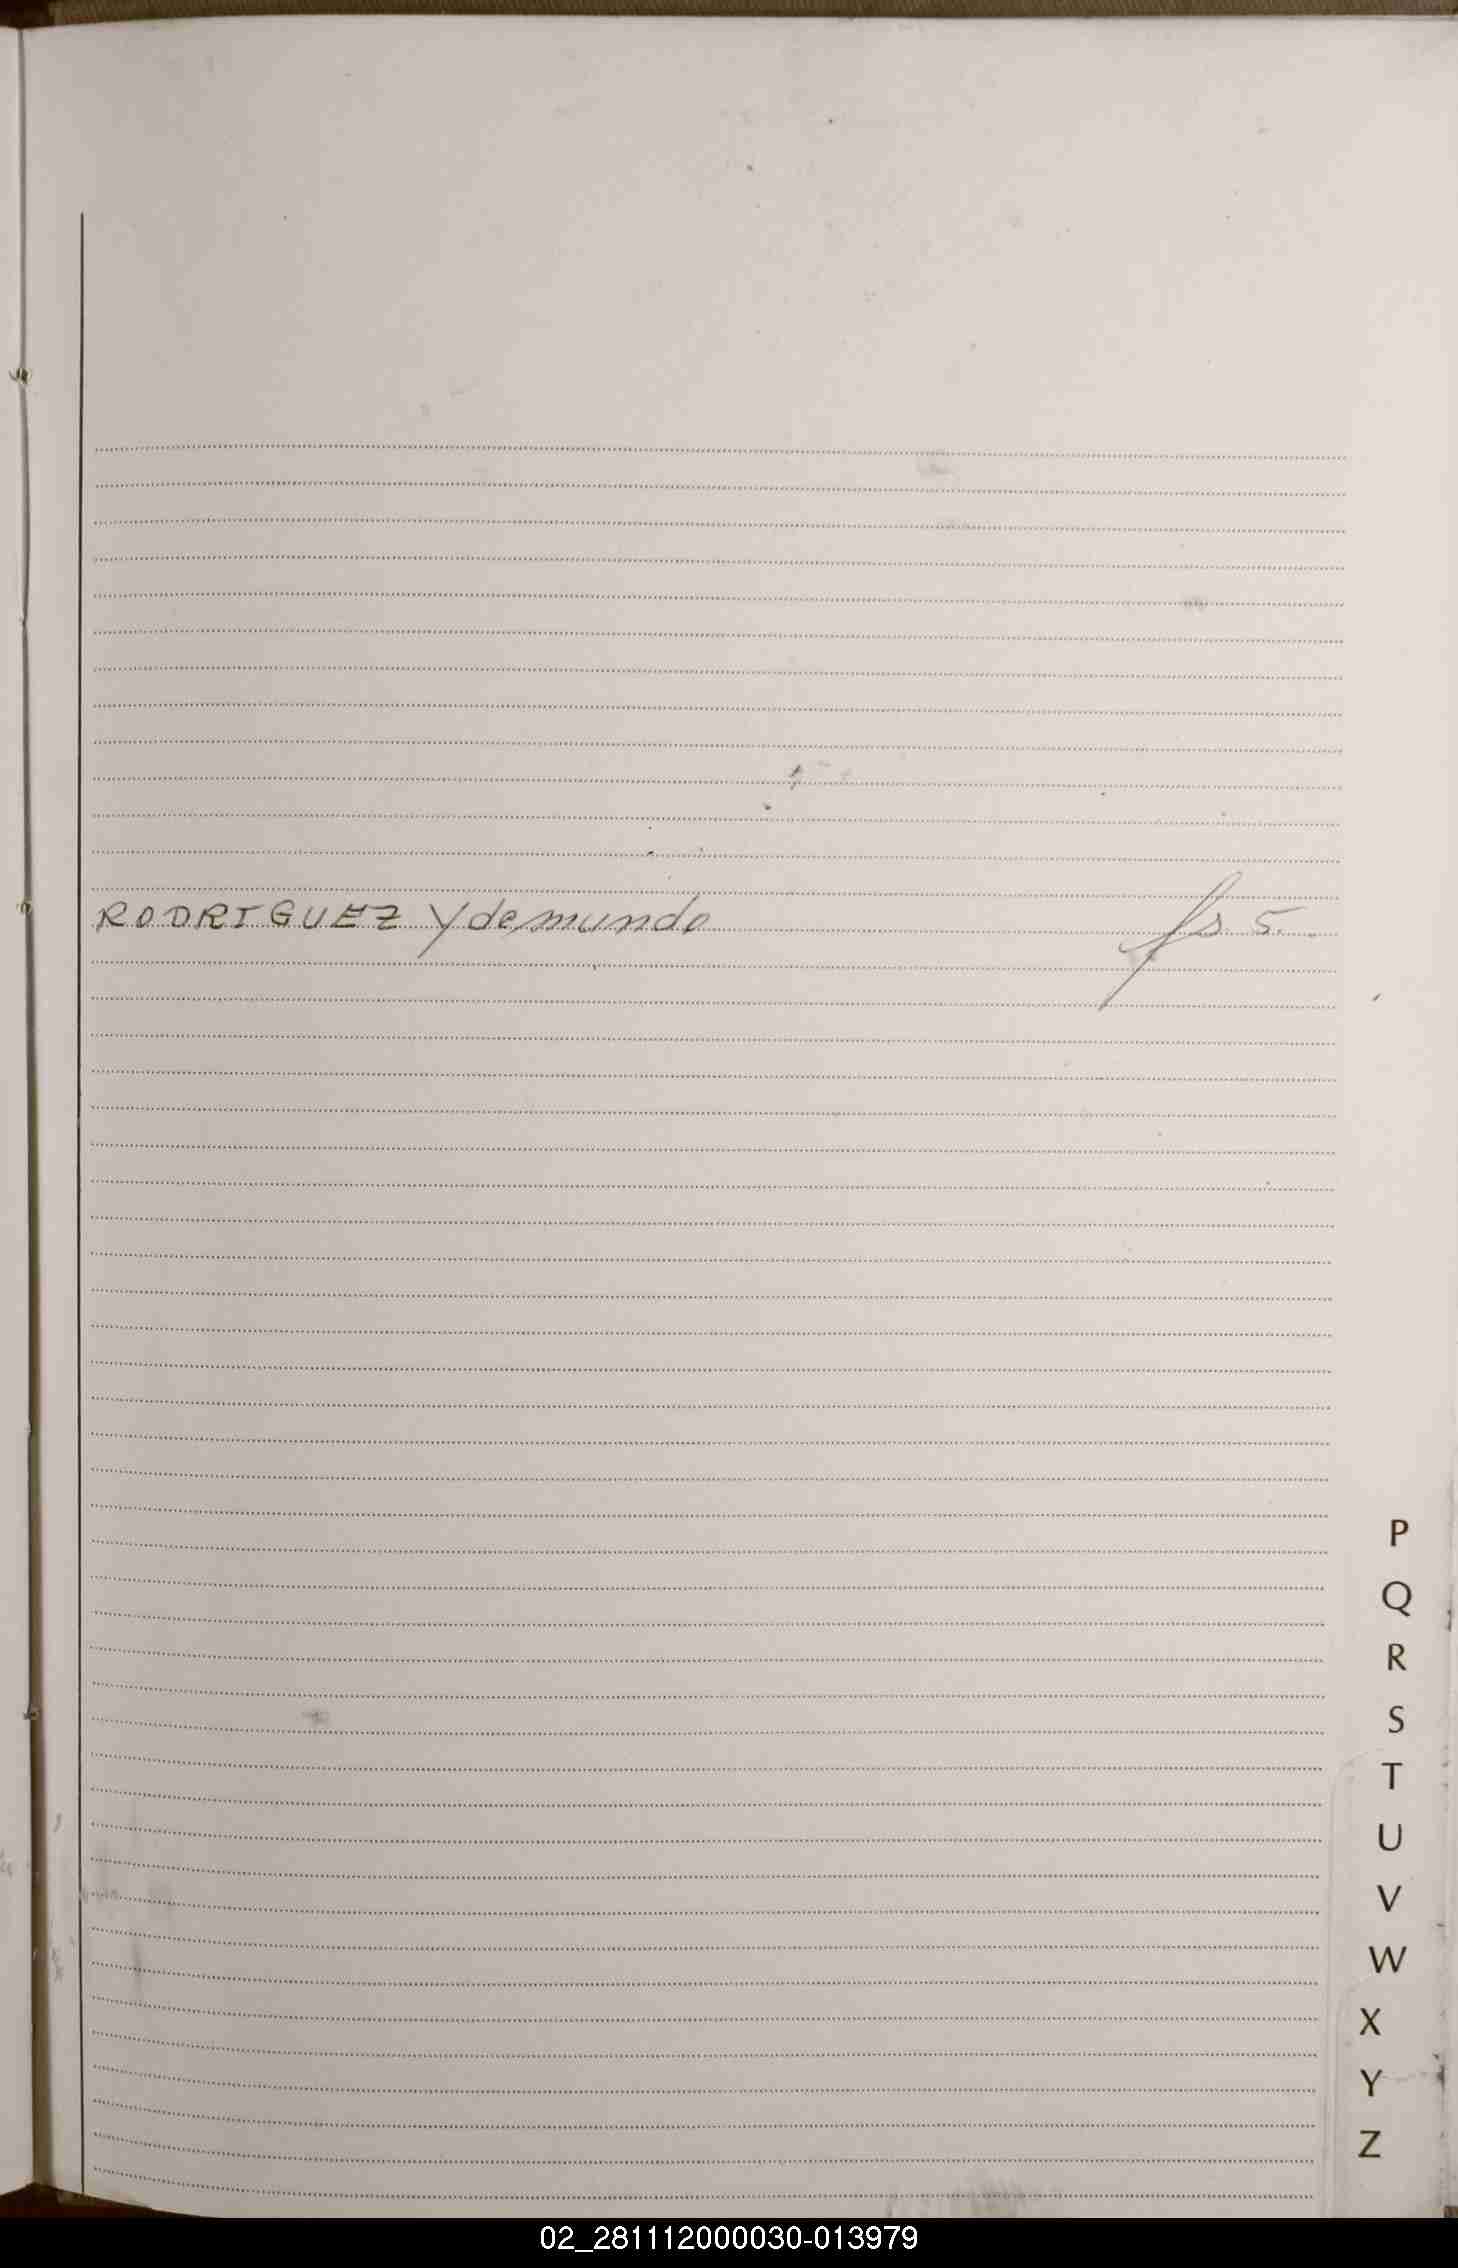 RODRIGUEZ Ydemundo fs 5.
P
Q
R
S
T
U
V
W
X
Y
Z
02_281112000030-013979